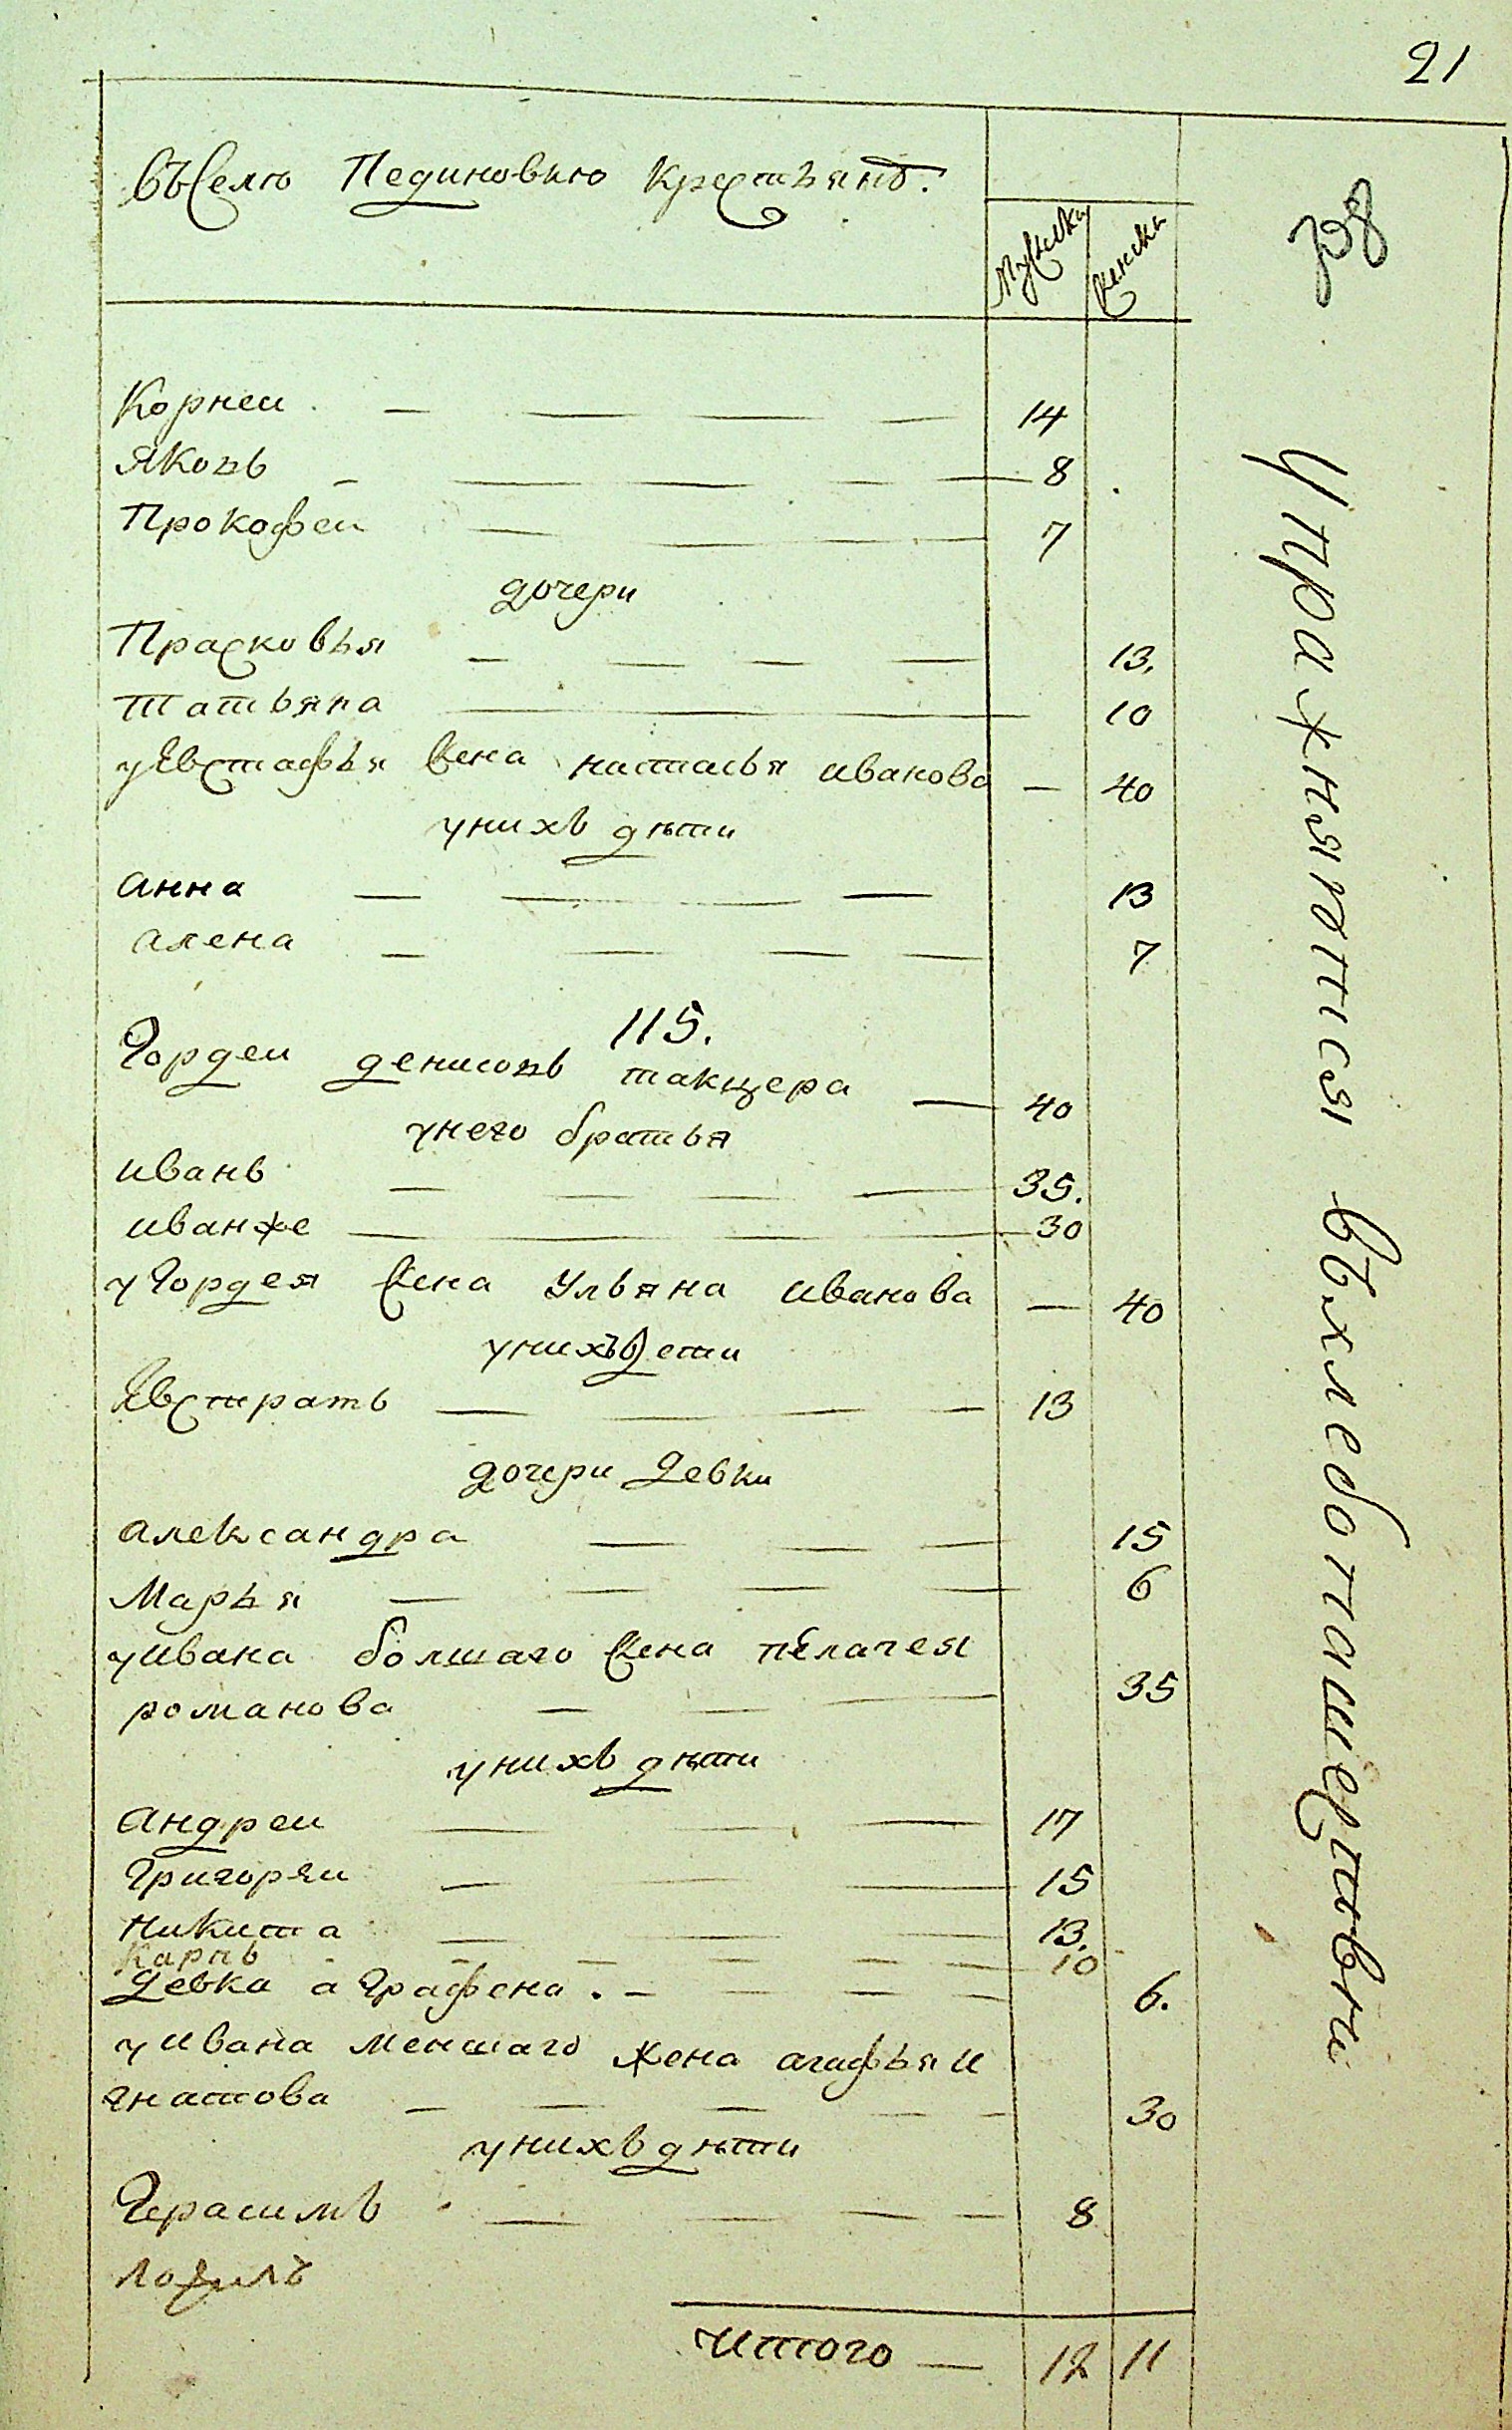 21
въ Селю Пединовкю Крестьянъ.
Мужеска
женска
Корнеи 14
Яковь 8
Прокофеи 7
дочери
Прасковья 13.
Татьяна 10
у Евстафья жена настасья иванова — 40
у нихъ дѣти
анна 13
алена 7
115.
Гордеи денисовь такцера — 40
у него братья
ивань 35.
иванже 30
у Гордея жена Ульяна иванова — 40
у нихъ дети
Евстрать 13
дочери девки
александра 15
Марья 6
у ивана болшаго жена пелагея
романова 35
у нихъ дѣти
андреи 17
Григореи 15
никита 13.
Карпь 10
девка аграфена. 6.
у ивана меншаго жена агафья и
гнатова 30
у нихъ дѣти
Герасимь 8
итого — 12 11
Упражняютися въ хлебопашественни